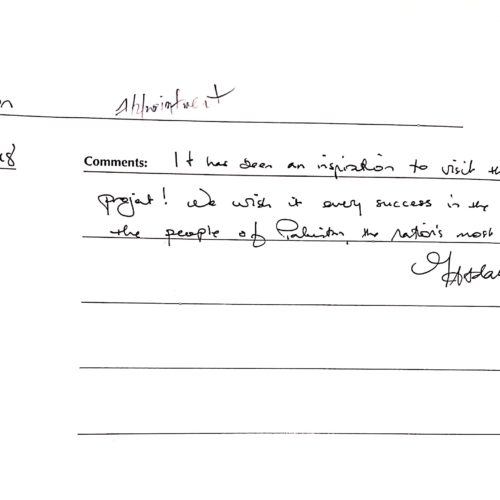 n Appointment
48
Comments: It has been an inspiration to visit th
project! We wish it every success in the
the people of Pakistan, the nation's most